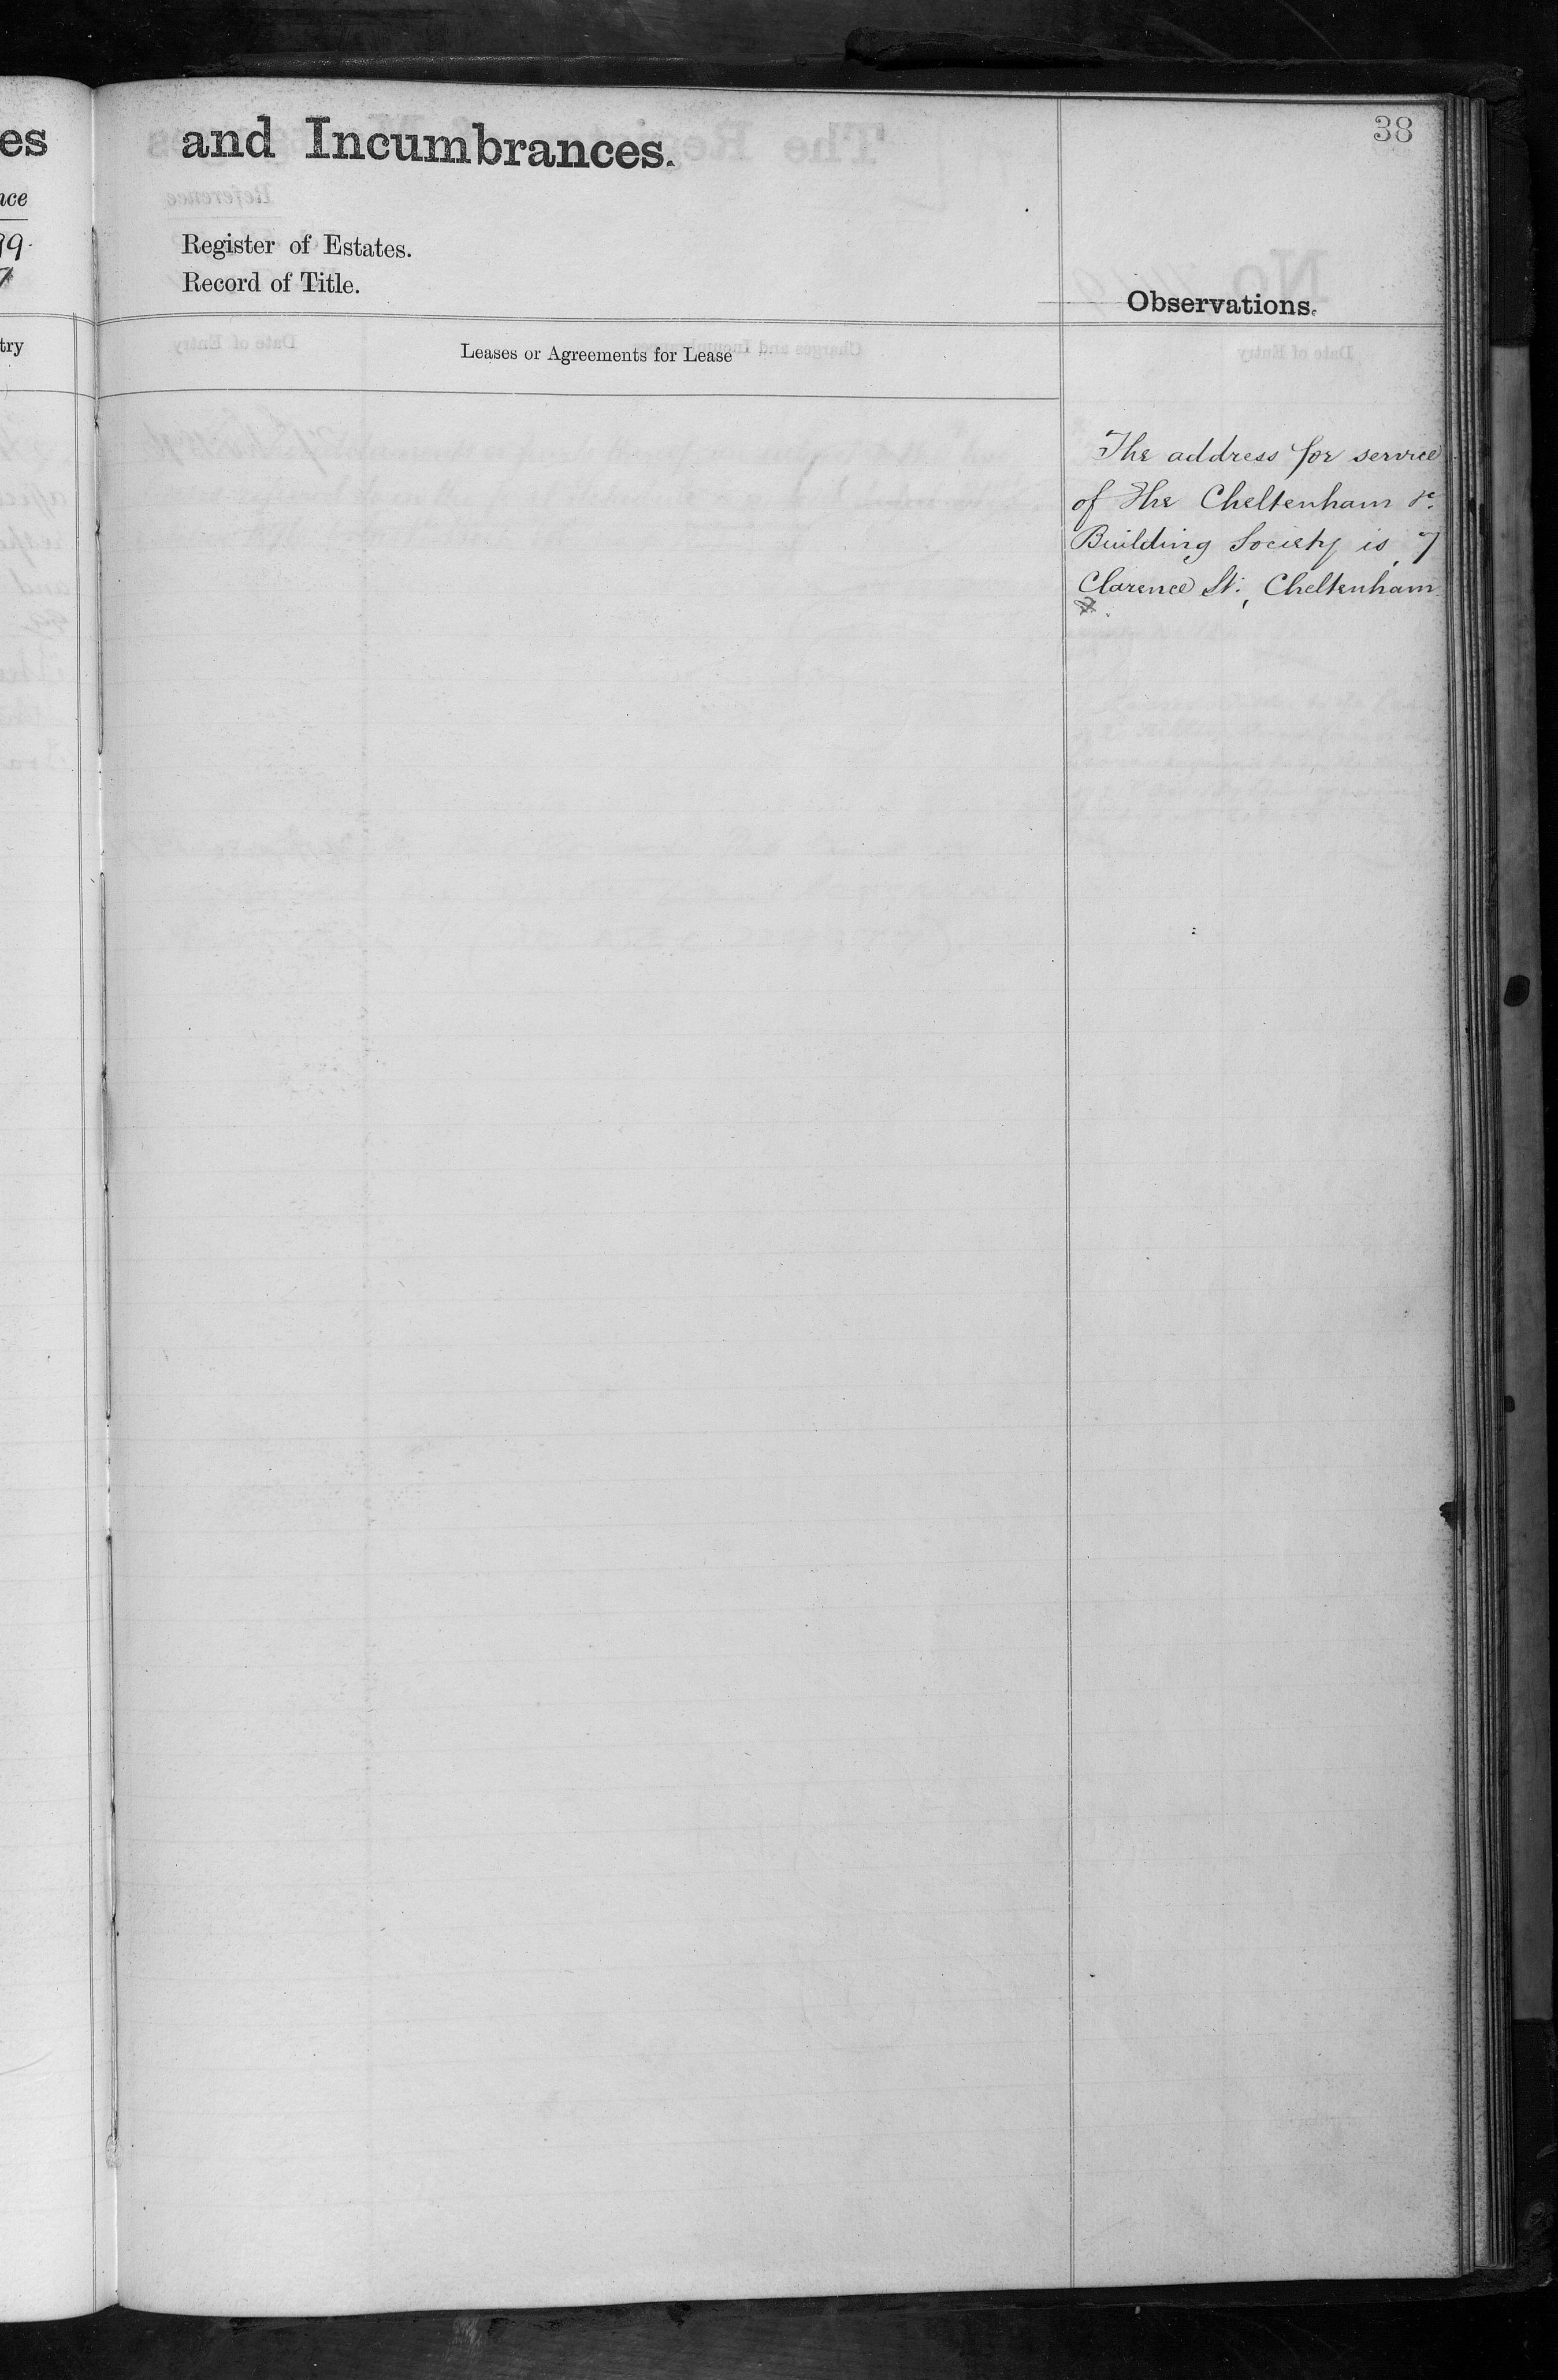 38
and Incumbrances.
Register of Estates.
Record of Title.
Observations.
Leases or Agreements for Lease
The address for service
of the Cheltenham &c.
Building Society is, 7
Clarence St., Cheltenham